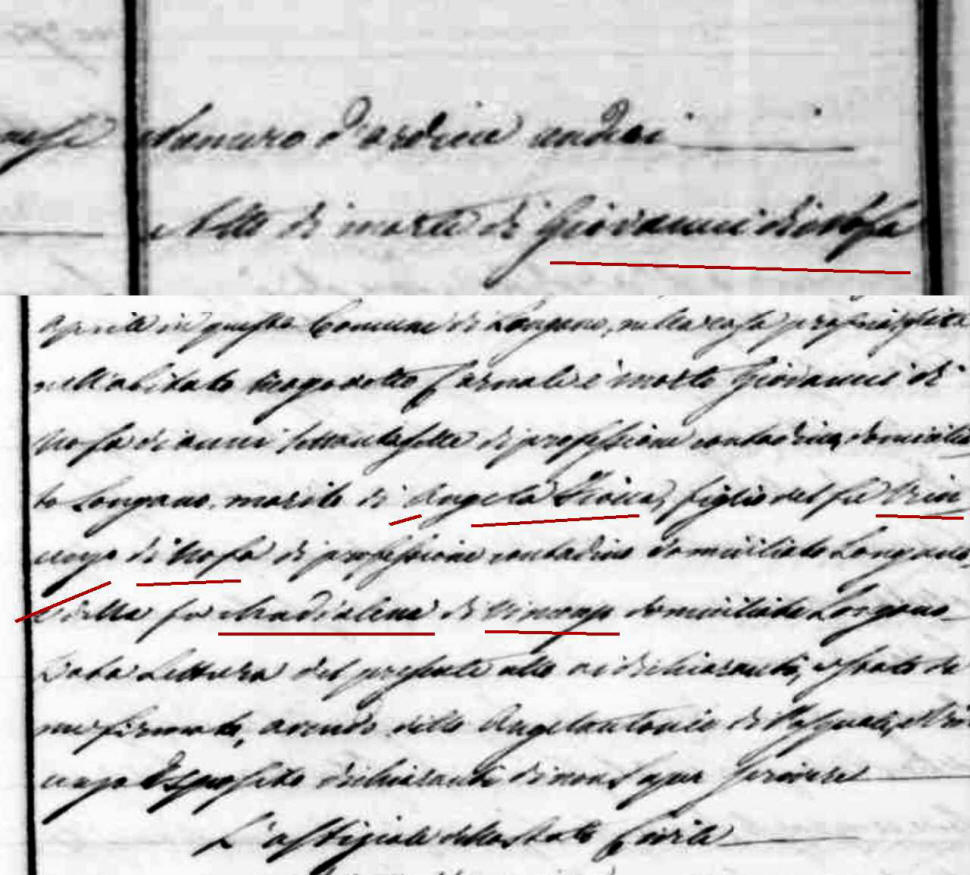 Numero d'ordine undici
Atto di morte di Giovanni di Nofa
Aprile in questo Comune di Longano, nella casa propria sita
nell'abitato luogo detto è morto Giovanni di
Nofa di anni settantasette di professione contadino, domicilia
to Longano, marito di Angela figlio del fu Vin
cenzo di Nofa di professione contadino domiciliato Longano,
e della fu Madialena di Vincenzo domiciliata Longano
Data lettura del presente atto ai dichiaranti, è stato da
me firmato, avendo detto Angelantonio di Pasquale, e Vin
cenzo Esposito dichiaranti di non saper scrivere
L'uffiziale dello Stato Civile